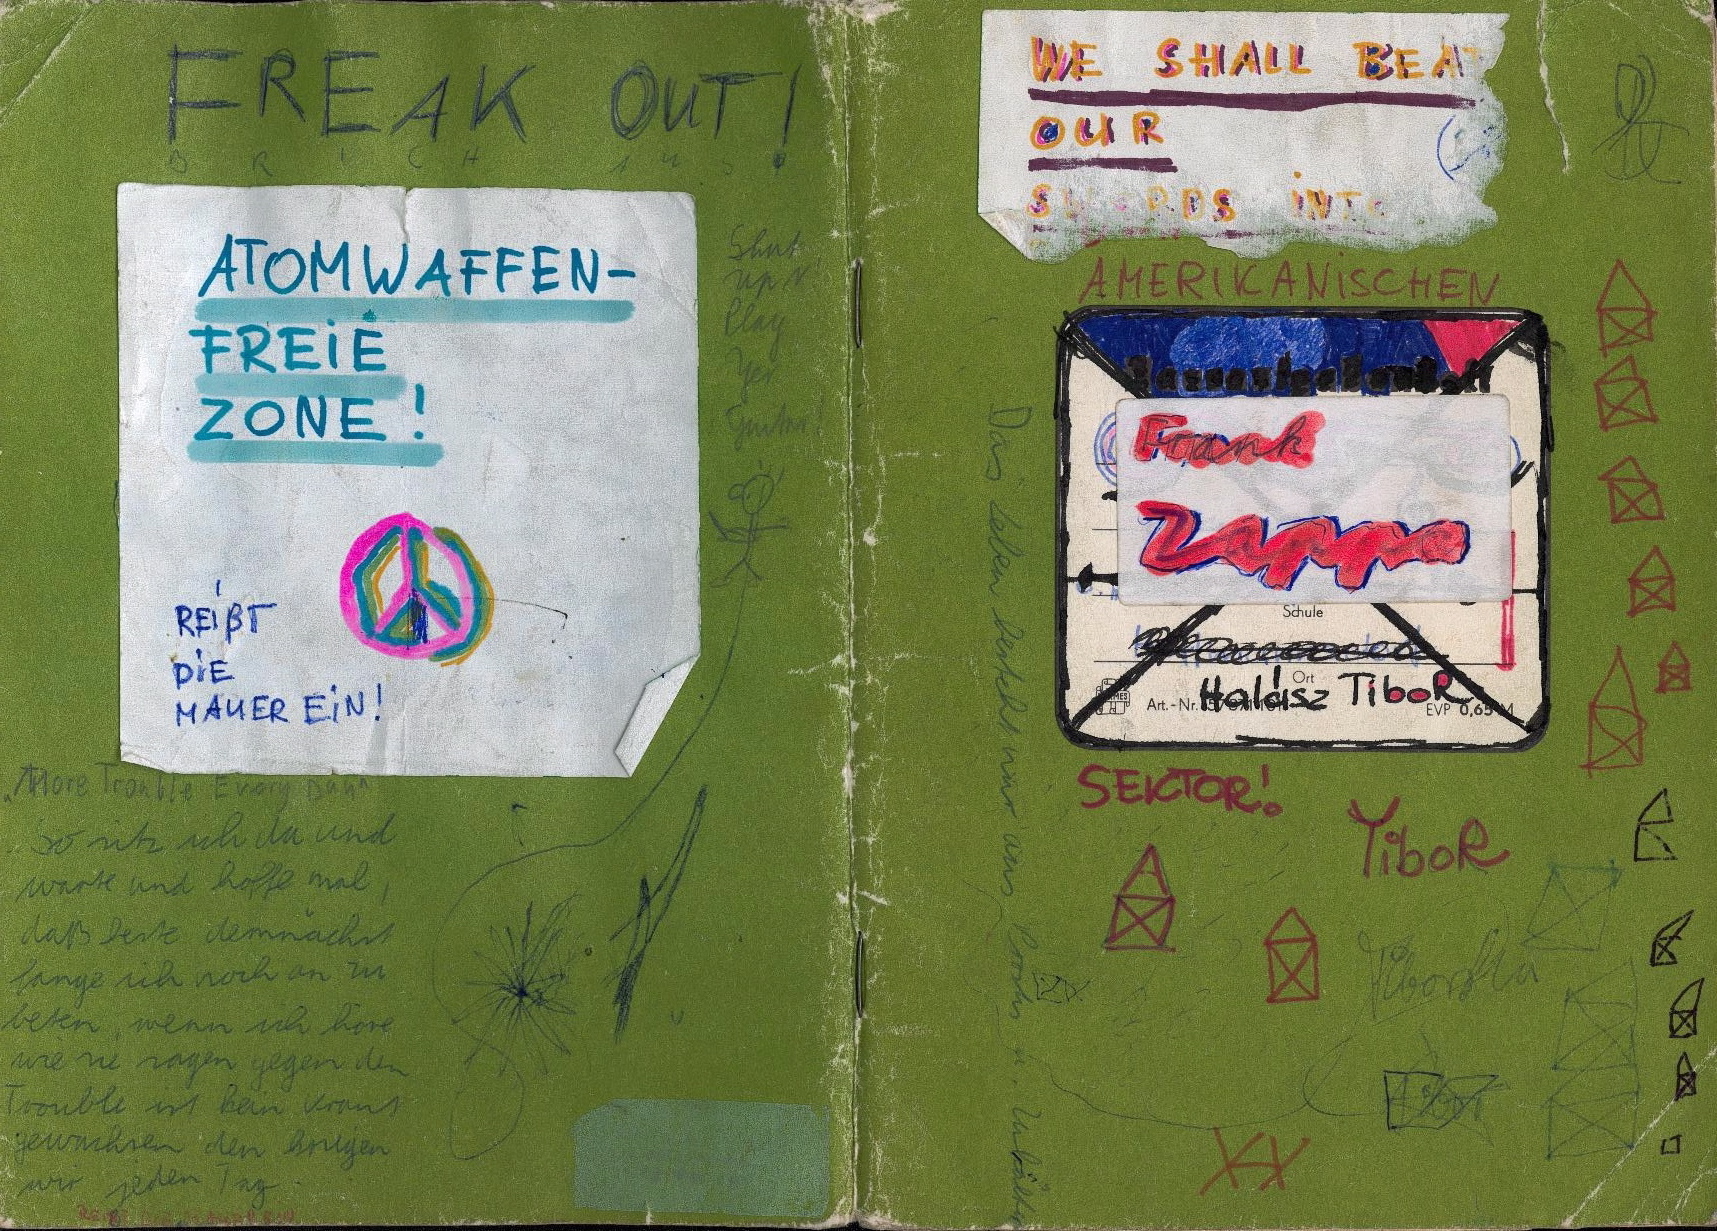 FREAK OUT!
BRICH AUS!
ATOMWAFFEN-
FREIE
ZONE!
REIßT
DIE
MAUER EIN!
Shut
up n'
Play
Yer
Guitar!
"More Trouble Every Day"
So sitz ich da und
warte und hoffe mal,
daß beste demnächst
fange ich noch an zu
beten, wenn ich höre
wie sie sagen gegen den
Trouble ist kein Kraut
gewachsen den kriegen
wir jeden Tag.
WE SHALL BEAT
OUR
SWORDS INTO
AMERIKANISCHEN
Frank
Zappa
Schule
Ort
Halász Tibor
Art.-Nr.
EVP 0,65 M
SEKTOR!
Tibor
Das Leben besteht nur aus
XX